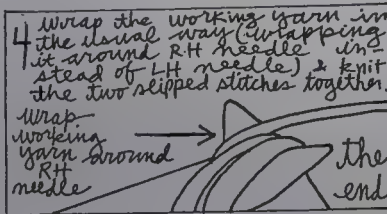 4 Wrap the working yarn in
the usual way (wrapping
it around RH needle in
stead of LH needle) & knit
the two slipped stitches together.
Wrap
working
yarn around
RH
needle
the
end